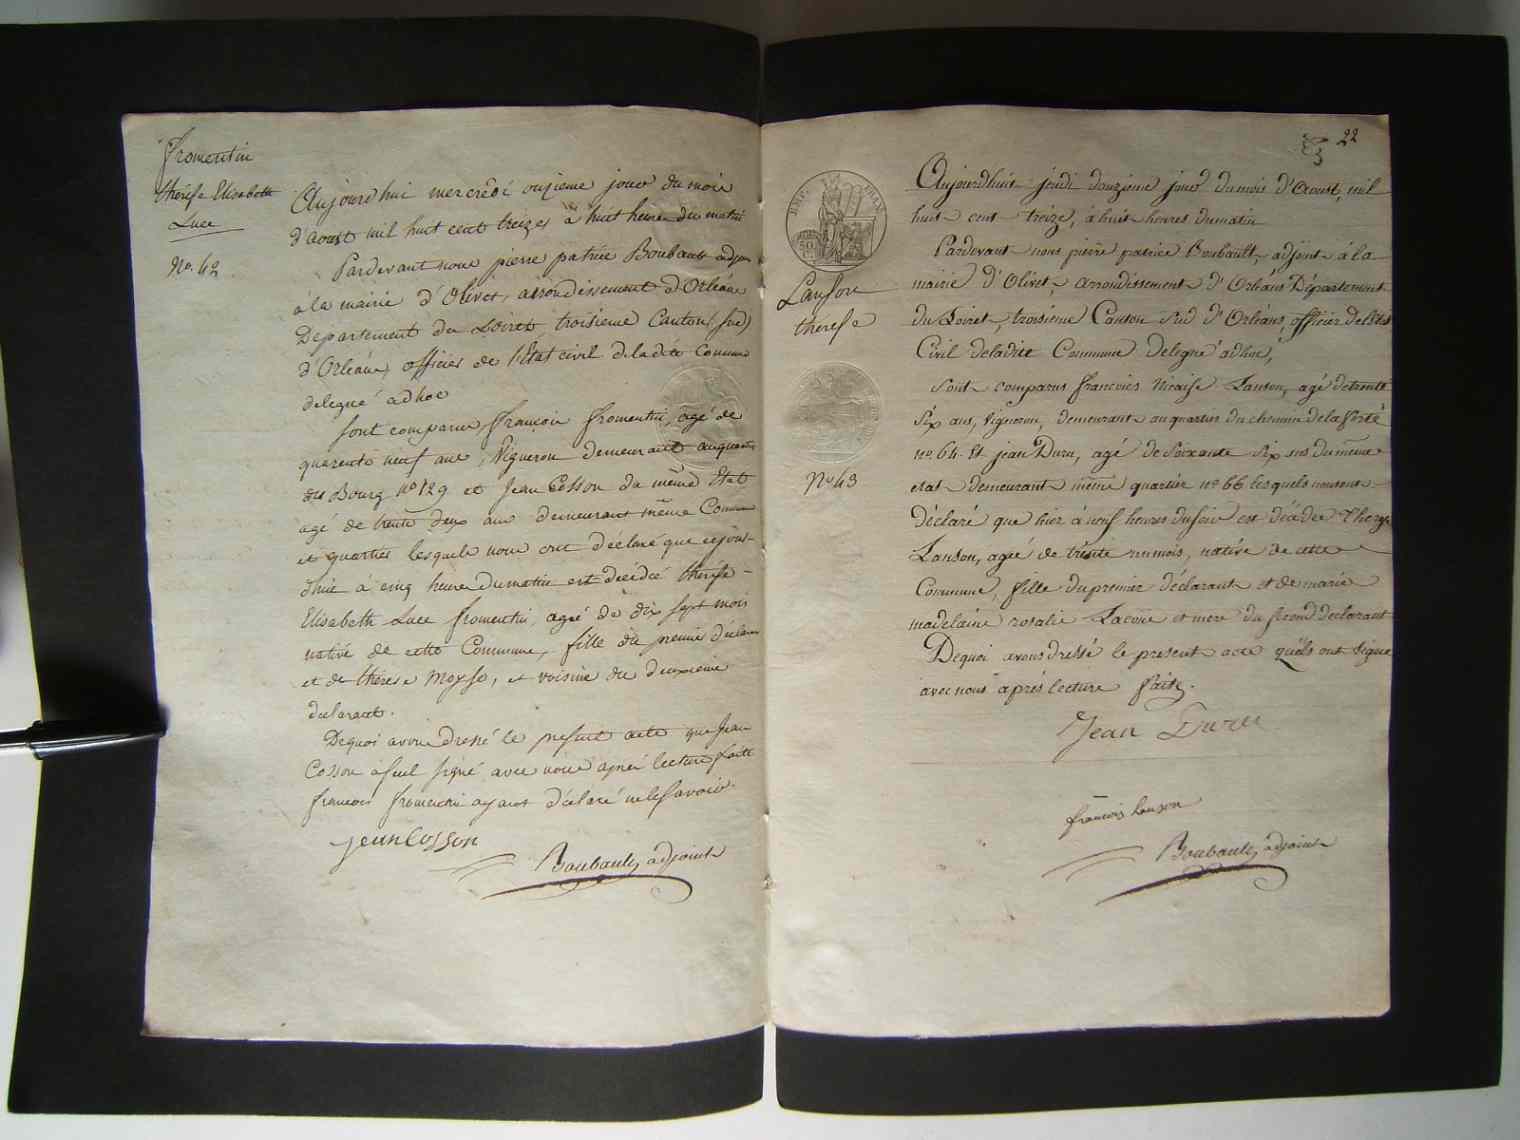 Fromentin
thérèse Elisabeth
Luce
No. 42
Aujourd'hui mercredi onzieme jour du mois
d'aoust mil huit cent treize à huit heures du matin
Pardevant nous pierre patrice Boubault adjoint
à la mairie d'Olivet, arrondissement d'Orléans
Departement du Loiret troisieme Canton (sud)
d'Orléans officier de l'Etat civil de la dite Commune
delegué adhoc
sont comparus françois fromentin, agé de
quarente neuf ans, Vigneron demeurant au quartier
du Bourg no 129 et Jean Cosson du même Etat
agé de trente deux ans demeurant même Commune
et quartier lesquels nous ont déclaré que cejour-
d'hui à cinq heures du matin est décédé thérèse
Elisabeth Luce fromentin, agée de dix sept mois
native de cette Commune, fille du premier déclarant
et de thérèse, et voisine du deuxieme
declarant.
Dequoi avons dressé le present acte que Jean
Cosson a seul signé avec nous après lecture faite
françois fromentin ayant déclaré ne le savoir.
jean Cosson
Boubault adjoint
22
IMP. FRAN.
50
C.
Lanson
thérèse
No 43
Aujourdhui jeudi douzième jour du mois d'Aoust, mil
huit cent treize, à huit heures du matin
Pardevant nous pierre patrice Boubault, adjoint à la
mairie d'Olivet, arrondissement d'Orléans Département
du Loiret, troisième Canton Sud d'Orléans, officier de l'état
Civil de ladite Commune delegué adhoc,
Sont comparus françois Nicaise Lanson, agé de trente
Six ans, Vigneron, demeurant au quartier du chemin de la ferté
no 64 Et jean Duru, agé de Soixante Six ans du même
etat demeurant même quartier no 66 lesquels nous ont
déclaré que hier à neuf heures du soir est décédée therese
Lanson, agée de trente un mois, native de cette
Commune, fille du premier déclarant et de marie
madelaine rosalie et mere du second declarant
Dequoi avons dressé le present acte qu'ils ont signé
avec nous après lecture faite.
Jean Duru
françois lanson
Boubault adjoint